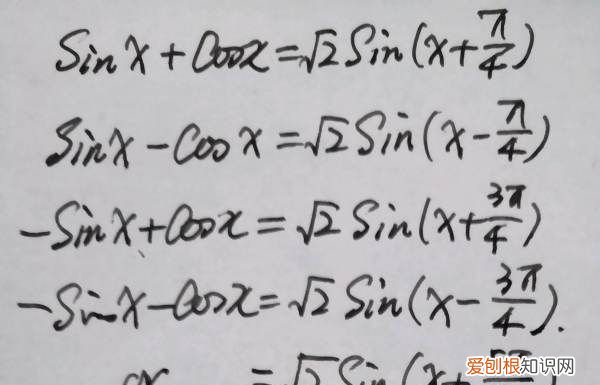 Sin x + Cos x = √2 Sin(x + π/4)
Sin x - Cos x = √2 Sin(x - π/4)
-Sin x + Cos x = √2 Sin(x + 3π/4)
-Sin x - Cos x = √2 Sin(x - 3π/4).
= √2 Sin(x +
爱刨根知识网